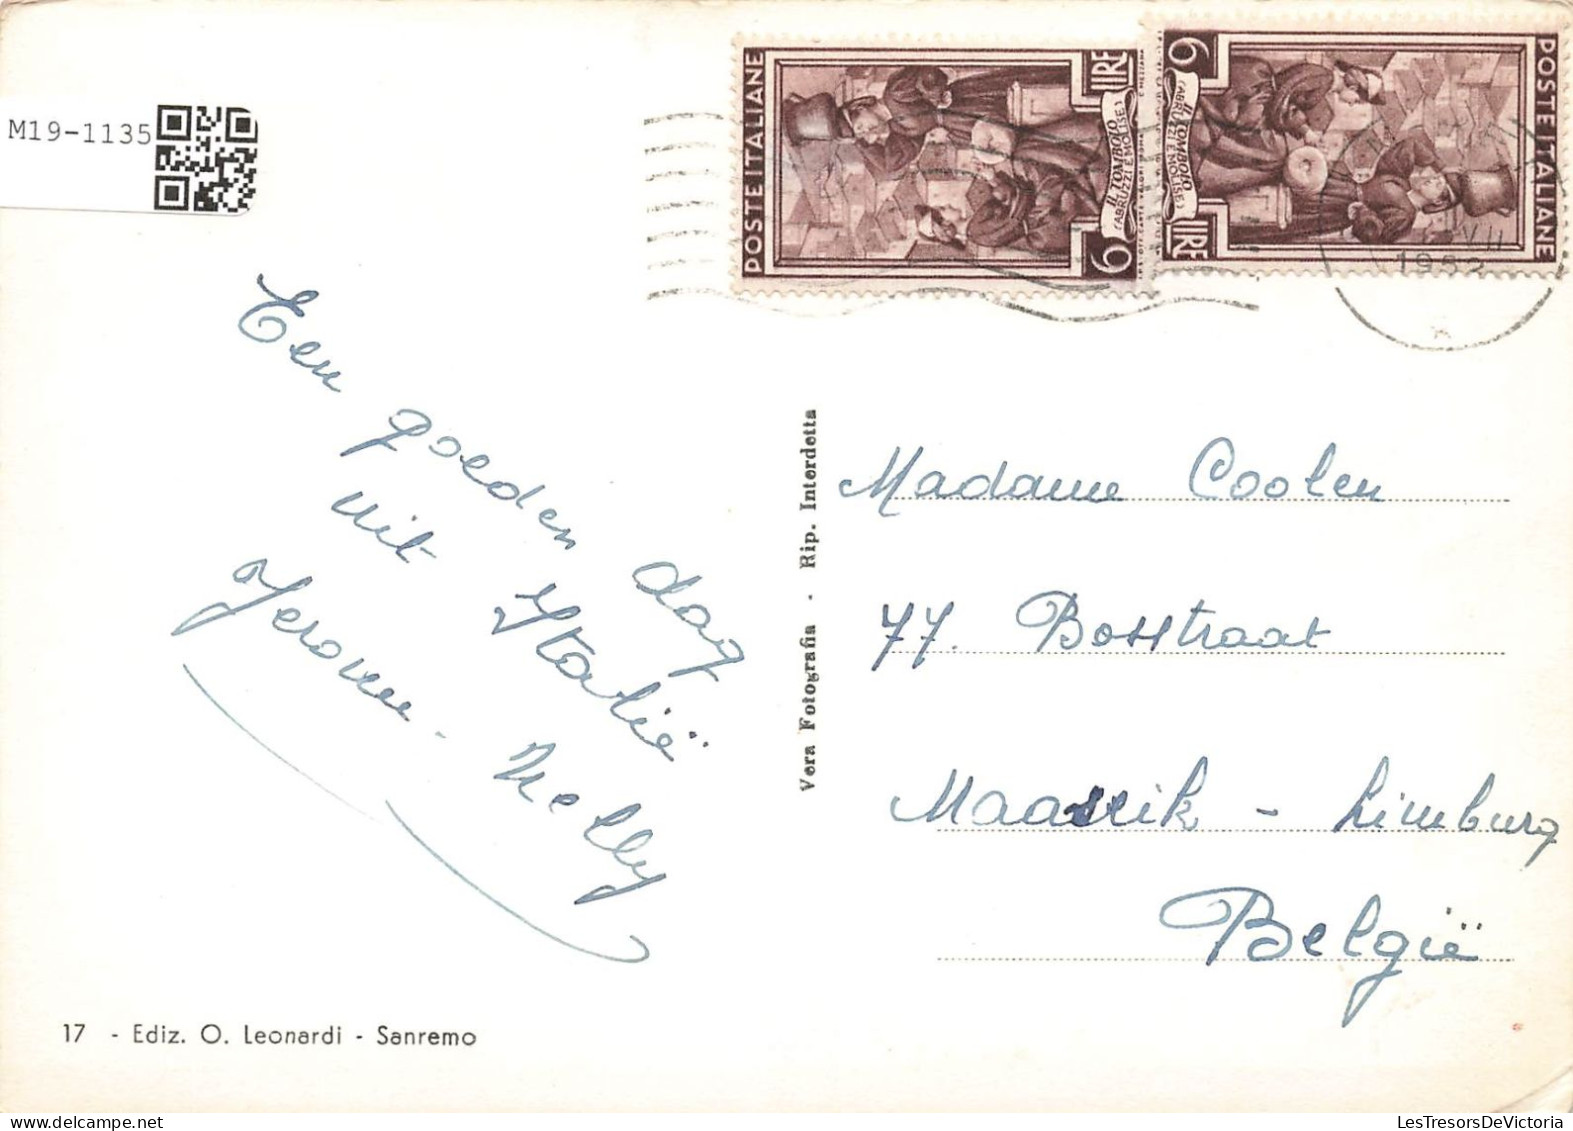 M19-1135
POSTE ITALIANE
LIRE 6
IL TOMBOLO
(ABRUZZI E MOLISE)
POSTE ITALIANE
LIRE 6
IL TOMBOLO
(ABRUZZI E MOLISE)
VII
1952
Een goeden dag
uit Italië
Jerome - Nelly
Vera Fotografia - Rip. Interdetta
Madame Coolen
77. Bosstraat
Maaseik - Limburg
België
17 - Ediz. O. Leonardi - Sanremo
LesTresorsDeVictoria.com